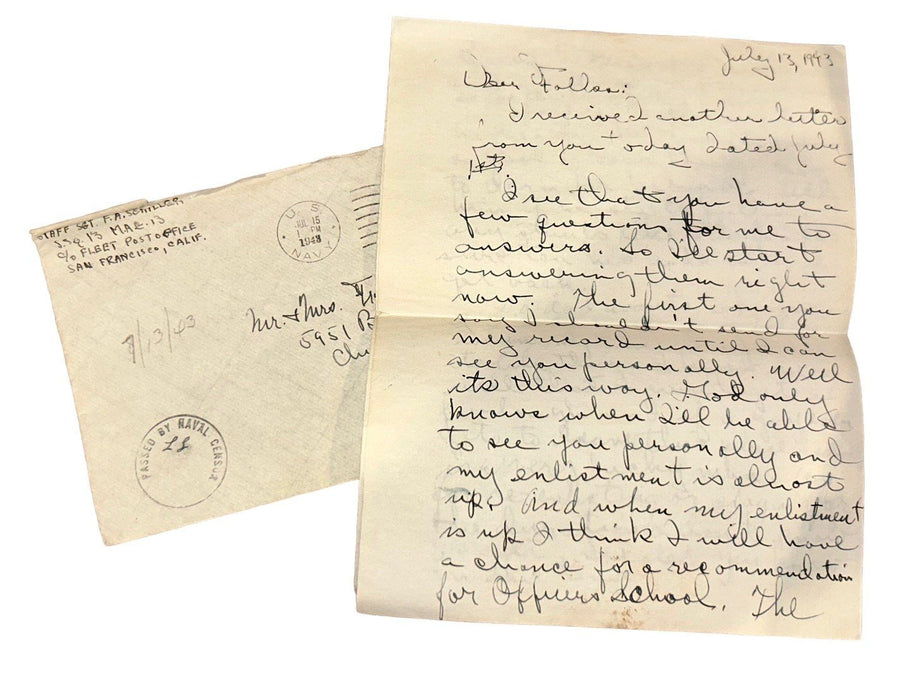 STAFF SGT. F. A. SCHILLER
SSQ. 13 MAG. 13
C/O FLEET POST OFFICE
SAN FRANCISCO, CALIF.
U.S.
JUL 15
1943
NAVY
7/13/43
Mr. & Mrs.
5951
PASSED BY NAVAL CENSOR
July 13, 1943
Dear Folks:
I received another letter
from you today dated July
1st.
I see that you have a
few questions for me to
answers. So I'll start
answering them right
now. The first one you
say I shouldn't send for
my record until I can
see you personally. Well
its this way. God only
knows when I'll be able
to see you personally and
my enlistment is almost
up. And when my enlistment
is up I think I will have
a chance for a recommendation
for Officers School. The